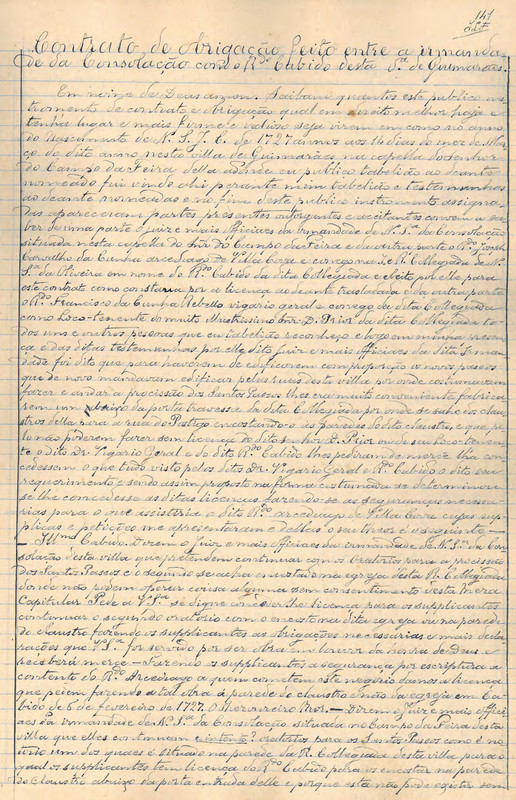 141
Contrato, de obrigação, feito entre a irmanda
de da Consolação com o Rdo. Cabido desta Va. de Guimarães.
Em nome de Deus amen. Saibam quantos este publico ins
tromento de contrato e obrigação qual em direito melhor haja e
tenha lugar e mais firme e valioso seja virem em como no anno
do Nascimento de N. S. J. C. de 1727 annos aos 14 dias do mez de Mar
ço do dito anno nesta villa de Guimarães na capella do senhor
do Campo da Feira della adonde eu publico tabelião ao deante
nomeado fui vindo ahi perante mim tabelião e testemunhas
ao deante nomeadas e no fim deste publico instrumento assigna
das appareceram partes presentes outorgantes e acceitantes convem a sa
ber de uma parte o juiz e mais officiaes da irmandade de N. Sa. da Consolação
situada nesta capella do Snr. do Campo da Feira e da outra parte o Rdo. Joseph
Carvalho da Cunha arcediago de Villa Cova e conego na I. e R. Collegiada de N.
Sa. da Oliveira em nome do Rdo. Cabido da dita Collegiada e eleito por elle para
este contrato como constaria por a licença ao deante trasladada e da outra parte
o Rdo. Francisco da Cunha Rebello vigario geral e conego da dita Collegiada
como Loco-tenente do muito Illustrissimo Snr. D. Prior da dita Collegiada to
dos uns e outros pessoas que eu tabelião reconheço e logo em minha presen
ça e das ditas testemunhas por elle dito juiz e mais officiaes da dita Irman
dade foi dito que para haverem de edificarem com proporção os novos passos
que de novo mandavam edificar pelas ruas desta villa por onde costumavam
fazer e andar a procissão dos Santos Passos lhes era muito conveniente fabrica
rem um abaixo da porta travessa da dita Collegiada por onde se sahe dos claus
tros della para a rua do Postigo encostando o ás paredes do dito claustro e que
o não poderem fazer sem licença do dito senhor D. Prior ou de seu Loco-tenen
te o dito Dr. Vigario Geral e do dito Rdo. Cabido lhes pediram de mercê lha con
cedessem o que tudo visto pelos ditos Dr. Vigario Geral e Rdo. Cabido o dito seu
requerimento e sendo assim proposto na forma costumada se determinou
se lhe concedesse as ditas licenças fazendo-se as seguranças necessa
rias para o que assistiria o dito Rdo. arcediago de Villa Cova cujas sup
plicas e petições me apresentaram e dellas o seu theor é o seguinte —
— Illmo. Cabido. Dizem o Juiz e mais officiaes da irmandade de N. Sa. da Con
solação desta villa que pretendem continuar com os Oratorios para a procissão
dos Santos Passos e o segundo se acha encostado na egreja desta R. Collegiada
donde não podem obrar coisa alguma sem consentimento desta Mera
Capitular. Pede a V. Sa. se digne conceder-lhe licença para os supplicantes
continuar o segundo oratorio com o encosto na dita egreja ou na parede
do claustro fazendo os supplicantes as obrigações necessarias e mais decla
rações que V. Sa. for servido por ser obra em louvor da honra de Deus e
receberá mercê — Fazendo os supplicantes a segurança por escriptura a
contento do Rdo. Arcediago a quem cometem este negocio damos a licença
que pedem fazendo a tal obra á parede do claustro e não da egreja em Ca
bido de 5 de fevereiro de 1727. O Thezoureiro Mor. — Dizem o Juiz e mais offici
aes da irmandade de N. Sa. da Consolação situada no Campo da Feira desta
villa que elles continuam e intento? oratorios para os Santos Passos como é no
torio um dos quaes é situado na parede da R. Collegiada desta villa para o
qual os supplicantes tem licença do Rdo. Cabido para os encostar na parede
do Claustro abaixo da porta entrada delle e porque esta não pode existir sem